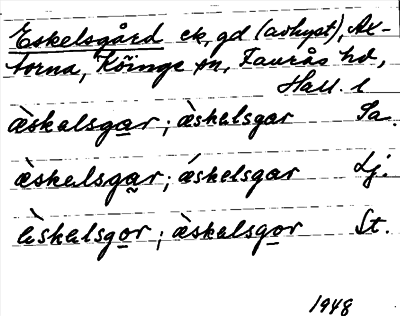 Eskelsgård ek, gd (avhyst), Ax-
torna, Köinge sn, Faurås hd,
Hall. l
æ̀skalsgar; æ̀skelsgar Sa.
æ̀skelsgar; ǽskelsgar Lj.
æ̀skelsgor; æ̀skalsgor St.
1948